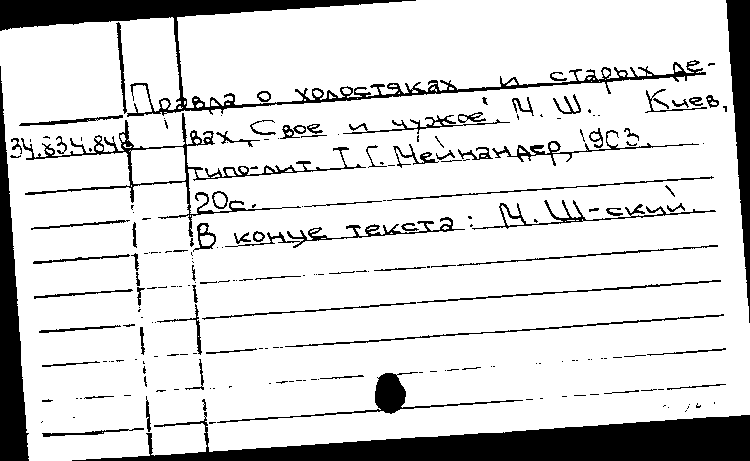 Правда о холостяках и старых де-
34.634.848. вах, „Свое и чужое". М. Ш. Киев,
типо-лит. Т. Г. Мейнандер, 1903.
20с.
В конце текста: М. Ш-ский.